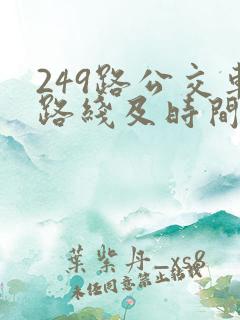 249路公交車
路綫及時間
葉紫丹_xs8
未经同意禁止转载